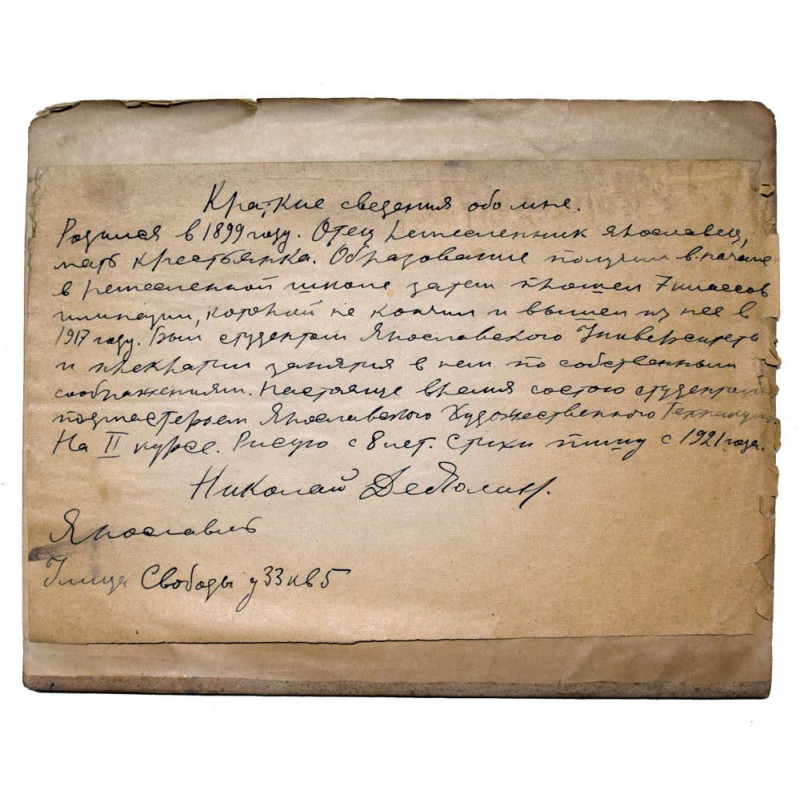 Краткие сведения обо мне.
Родился в 1899 году. Отец ремесленник ярославец,
мать крестьянка. Образование получил в начале
в ремесленной школе затем прошел 7 классов
гимназии, которой не кончил и вышел из нее в
1917 году. Был студентом Ярославского Университета
и прекратил занятия в нем по собственным
соображениям. Настояще время состою студентом
подмастерьем Ярославского Художественного Техникума.
На II курсе. Рисую с 8 лет. Стихи пишу с 1921 года.
Николай
Ярославль
Улица Свободы д 33 кв 5